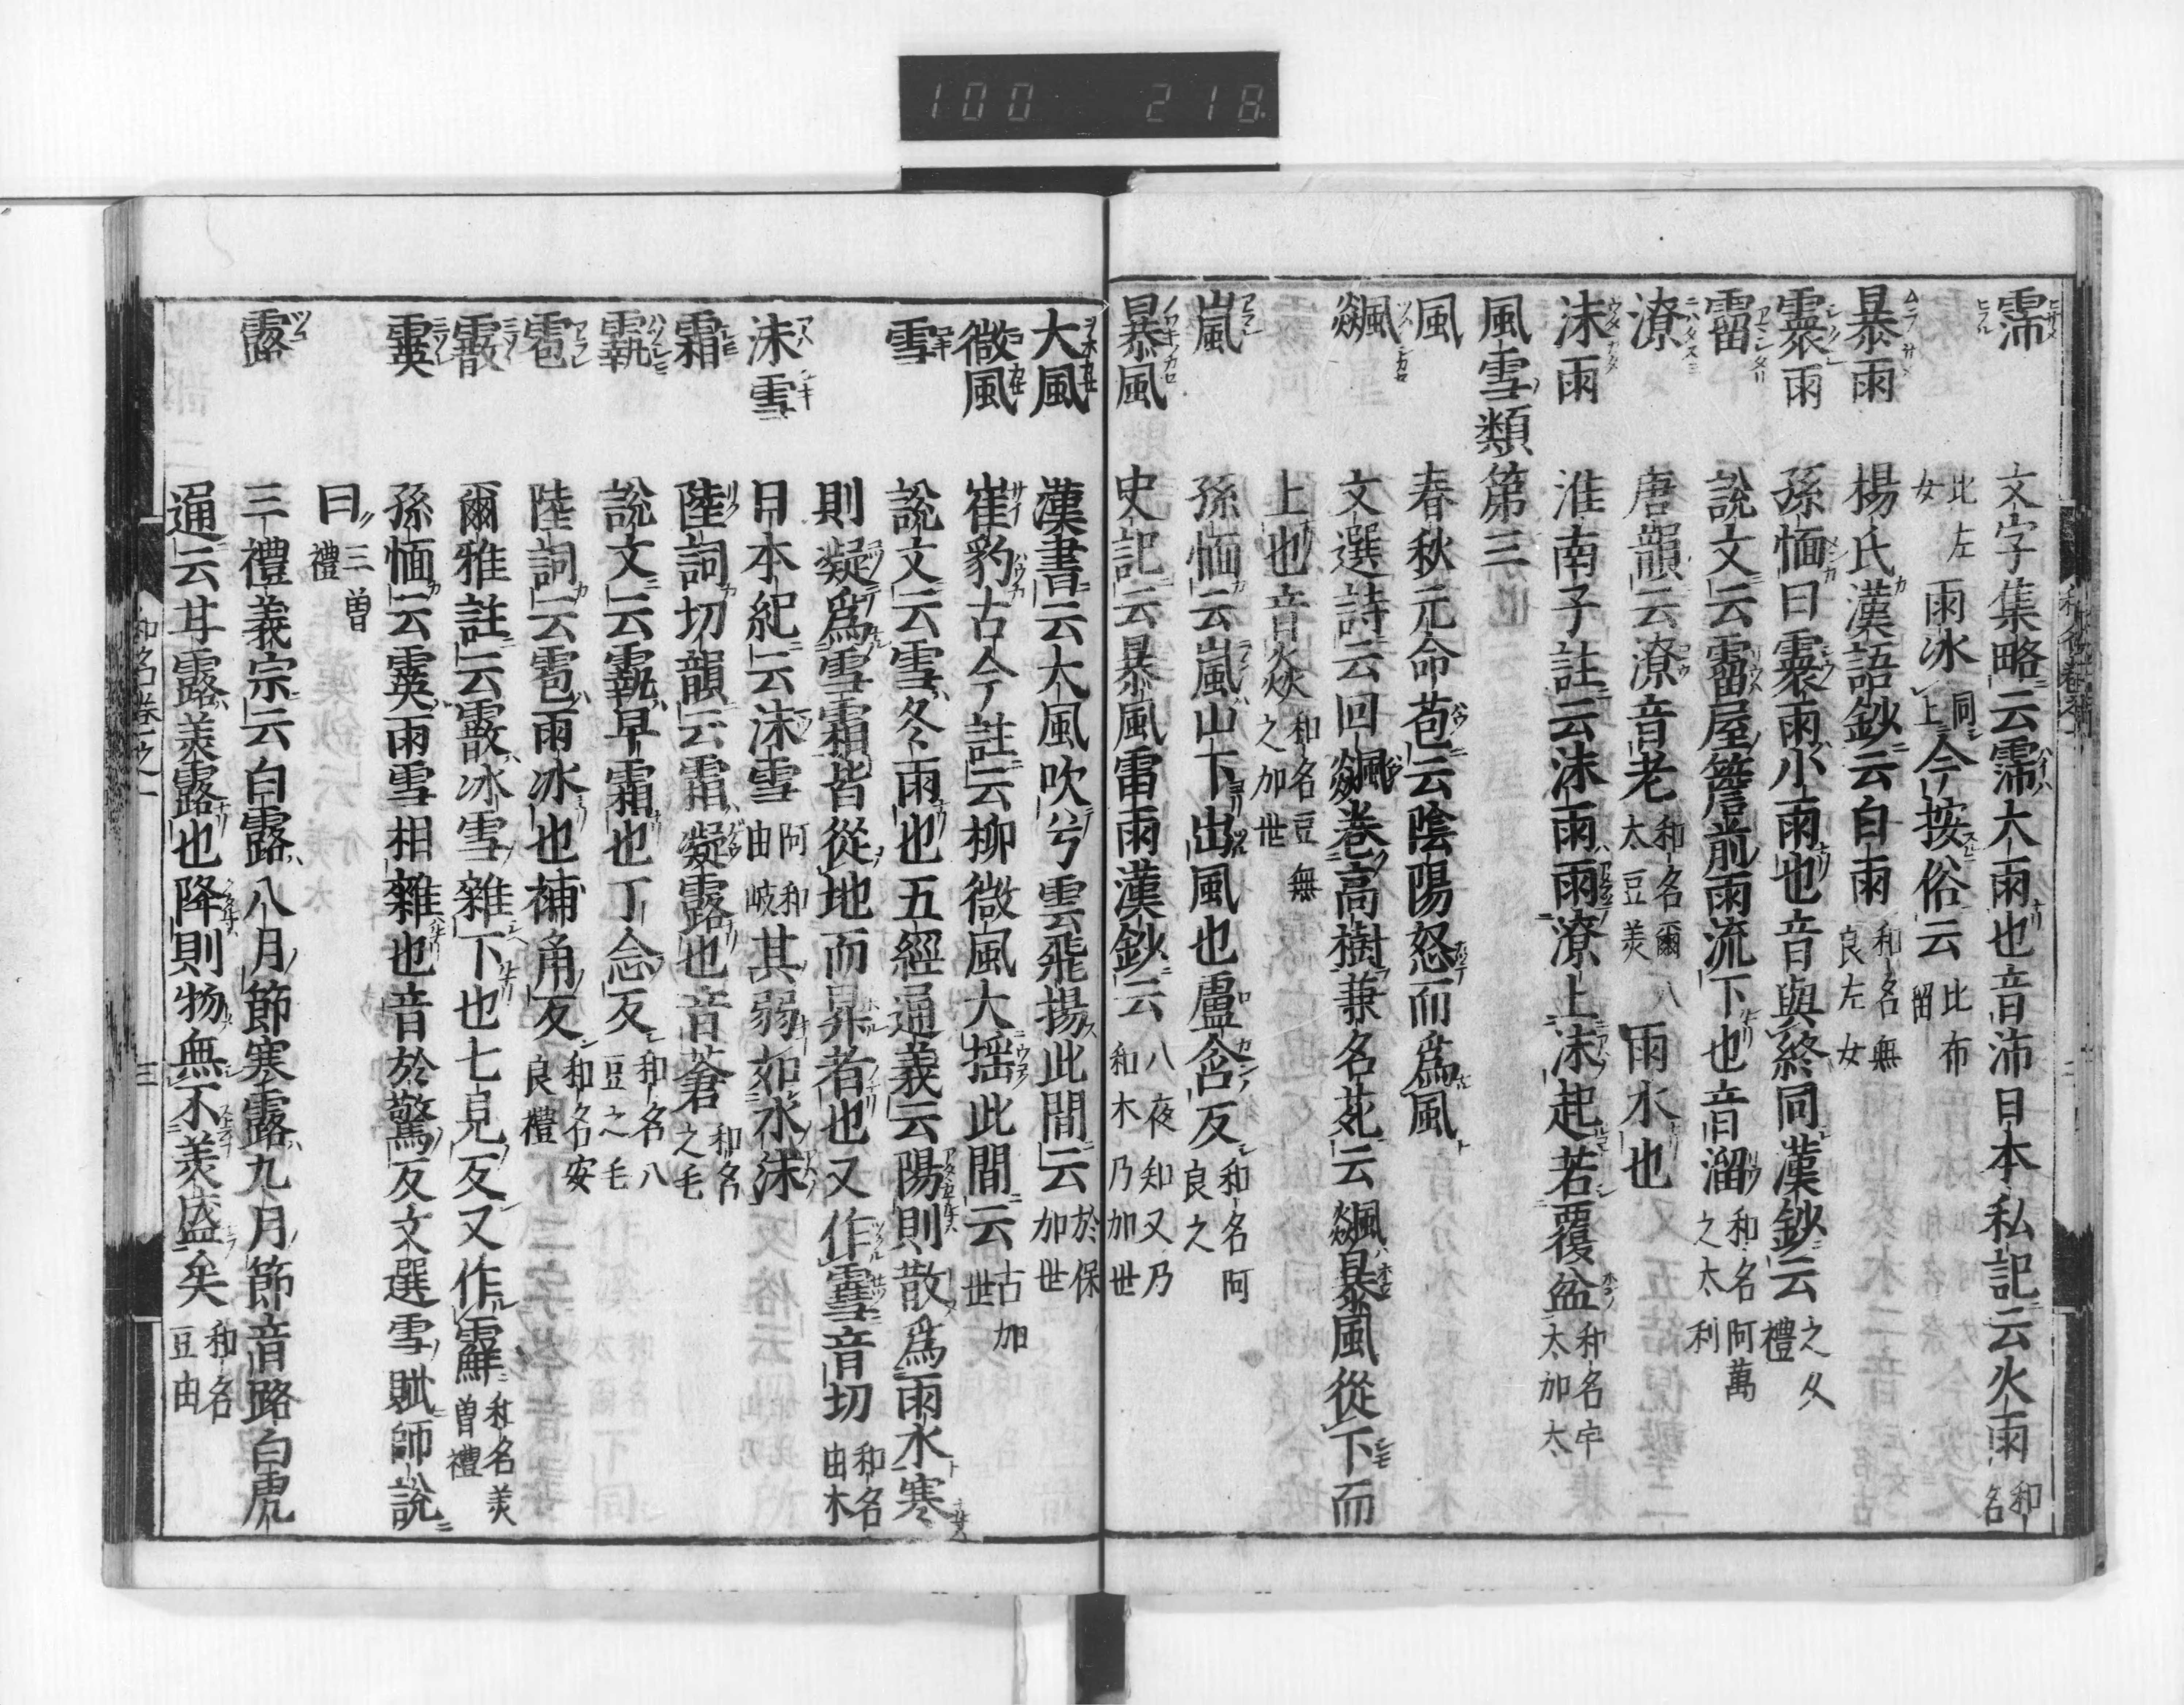 100 218
霈 文字集略云霈大雨也音沛日本私記云火雨 和名
比左女 雨冰 同上 今按俗云 比布留
暴雨 楊氏漢語鈔云白雨 和名無良左女
霥雨 孫愐曰霥雨小雨也音與終同漢鈔云 之久禮
霤 說文云霤屋簷前雨流下也音溜 和名阿萬之太利
潦 唐韻云潦音老 和名爾八太豆美 雨水也
沫雨 淮南子註云沫雨雨潦上沫起若覆盆 和名宇太加太
風雪類第三
風 春秋元命苞云陰陽怒而爲風
飈 文選詩云回飈卷高樹兼名苑云飈暴風從下而
上也音焱 和名豆無之加世
嵐 孫愐云嵐山下出風也盧含反 和名阿良之
暴風 史記云暴風雷雨漢鈔云 八夜知又乃和木乃加世
大風 漢書云大風吹兮雲飛揚此間云 於保加世
微風 崔豹古今註云柳微風大揺此間云 古加世
雪 說文云雪冬雨也五經通義云陽則散爲雨水寒
則凝爲雪霜皆從地而昇者也又作䨮音切 和名由木
沫雪 日本紀云沫雪 阿和由岐 其弱如水沫
霜 陸詞切韻云霜凝露也音蒼 和名之毛
霵 說文云霵早霜也丁念反 和名八豆之毛
雹 陸詞云雹雨冰也補角反 和名安良禮
霰 爾雅註云霰冰雪雜下也七見反又作䨘 和名美曽禮
霙 孫愐云霙雨雪相雜也音於驚反文選雪賦師說
曰 三曽禮
露 三禮義宗云白露八月節寒露九月節音路白虎
通云甘露美露也降則物無不美盛矣 和名豆由
和名卷之一 三